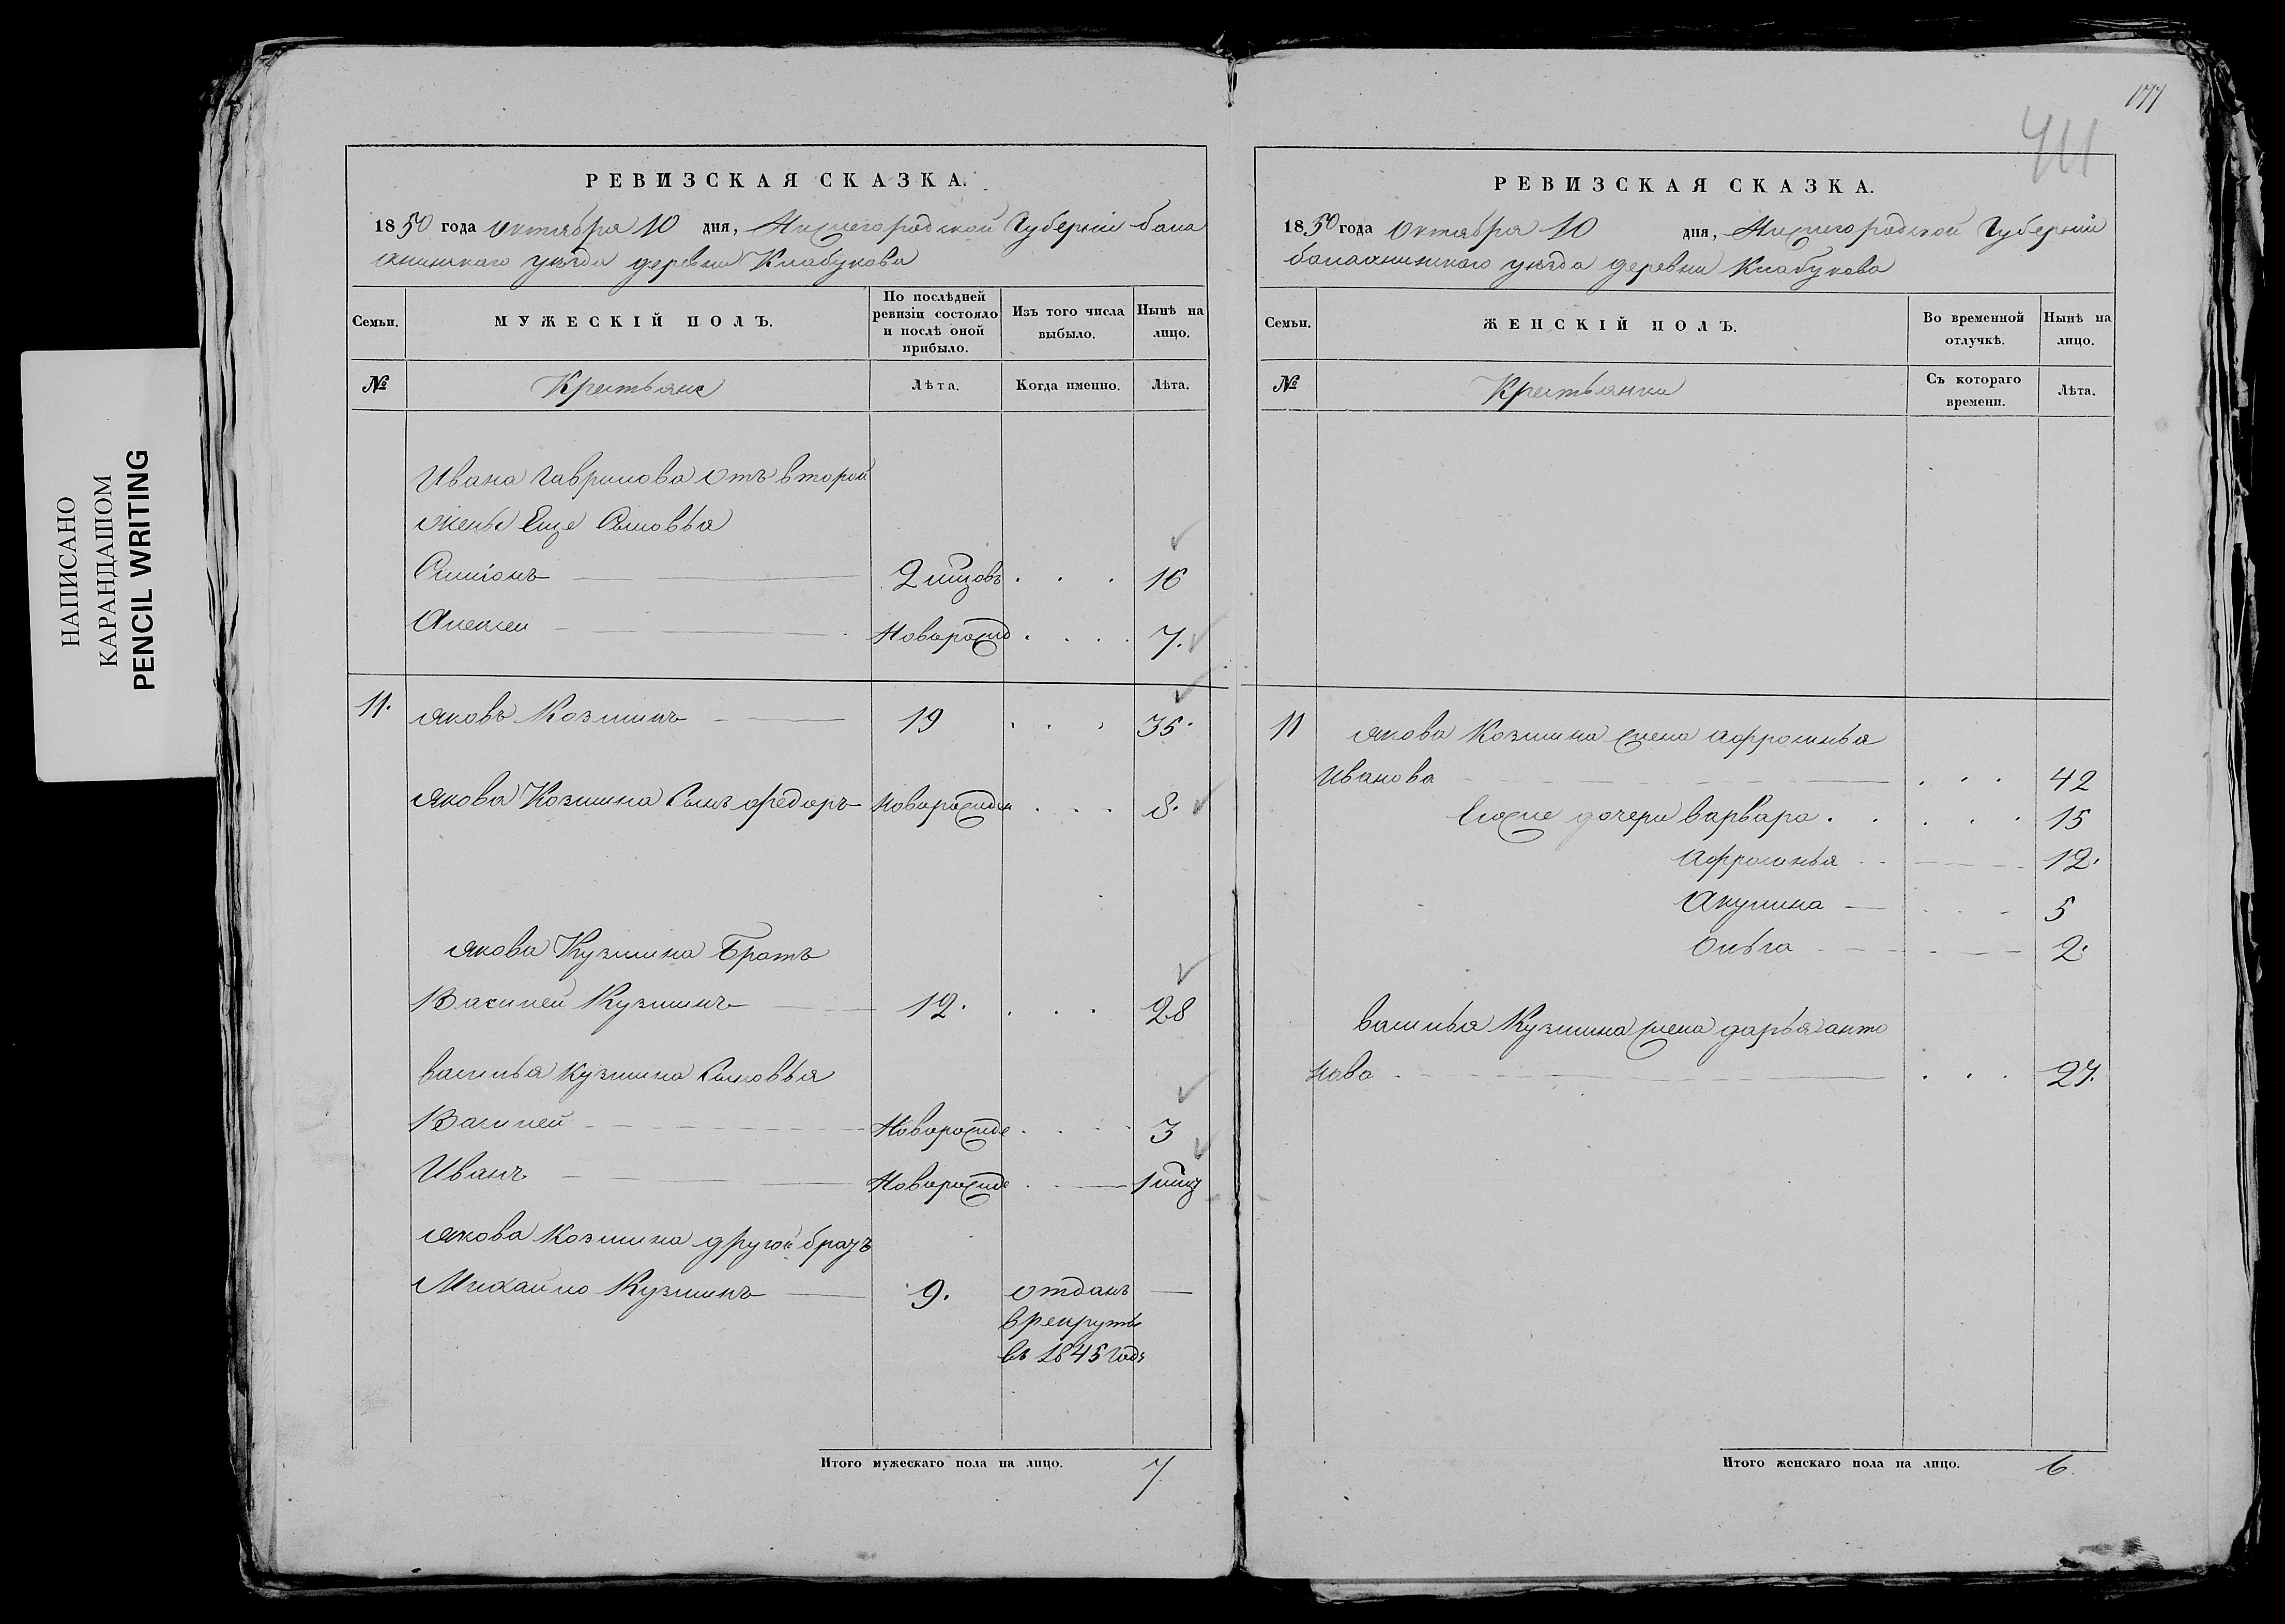 НАПИСАНО
КАРАНДАШОМ
PENCIL WRITING
РЕВИЗСКАЯ СКАЗКА.
1850 года Октября 10 дня, Нижегородской Губерніи бала
хнинскаго уѣзда деревни Клабукова
Семьи.
МУЖЕСКІЙ ПОЛЪ.
По послѣдней
ревизіи состояло
и послѣ оной
прибыло.
Изъ того числа
выбыло.
Нынѣ на
лицо.
№
Крестьяне
Лѣта.
Когда именно.
Лѣта.
Ивана Гаврилова Отъ второй
жены Еще Сыновья
Симіонъ 16
Алексеи Новорожд 7.
11. яковъ Козминъ 19 35.
якова Козмина Сынъ федоръ новорожден 8.
якова Кузмина Братъ
Василей Кузминъ 12. 28
василья кузмина Сыновья
Василей Новорожде 3
Иванъ Новорожде
якова козмина другой братъ
Михайло Кузминъ 9. отданъ
в рекруты
въ 1845 годъ
Итого мужескаго пола на лицо. 7
177
411
РЕВИЗСКАЯ СКАЗКА.
1850 года Октября 10 дня, Нижегородской Губерніи
балахнинскаго уѣзда деревни Клабукова
Семьи.
ЖЕНСКІЙ ПОЛЪ.
Во временной
отлучкѣ.
Нынѣ на
лицо.
№
Крестьянки
Съ котораго
времени.
Лѣта.
11 якова Козмина жена афросинья
Иванова 42
Ихже дочери варвара 15
Афросинья 12.
Акулина 5
Ольга 2.
василья Кузмина жена дарья анто
нова 27.
Итого женскаго пола на лицо. 6